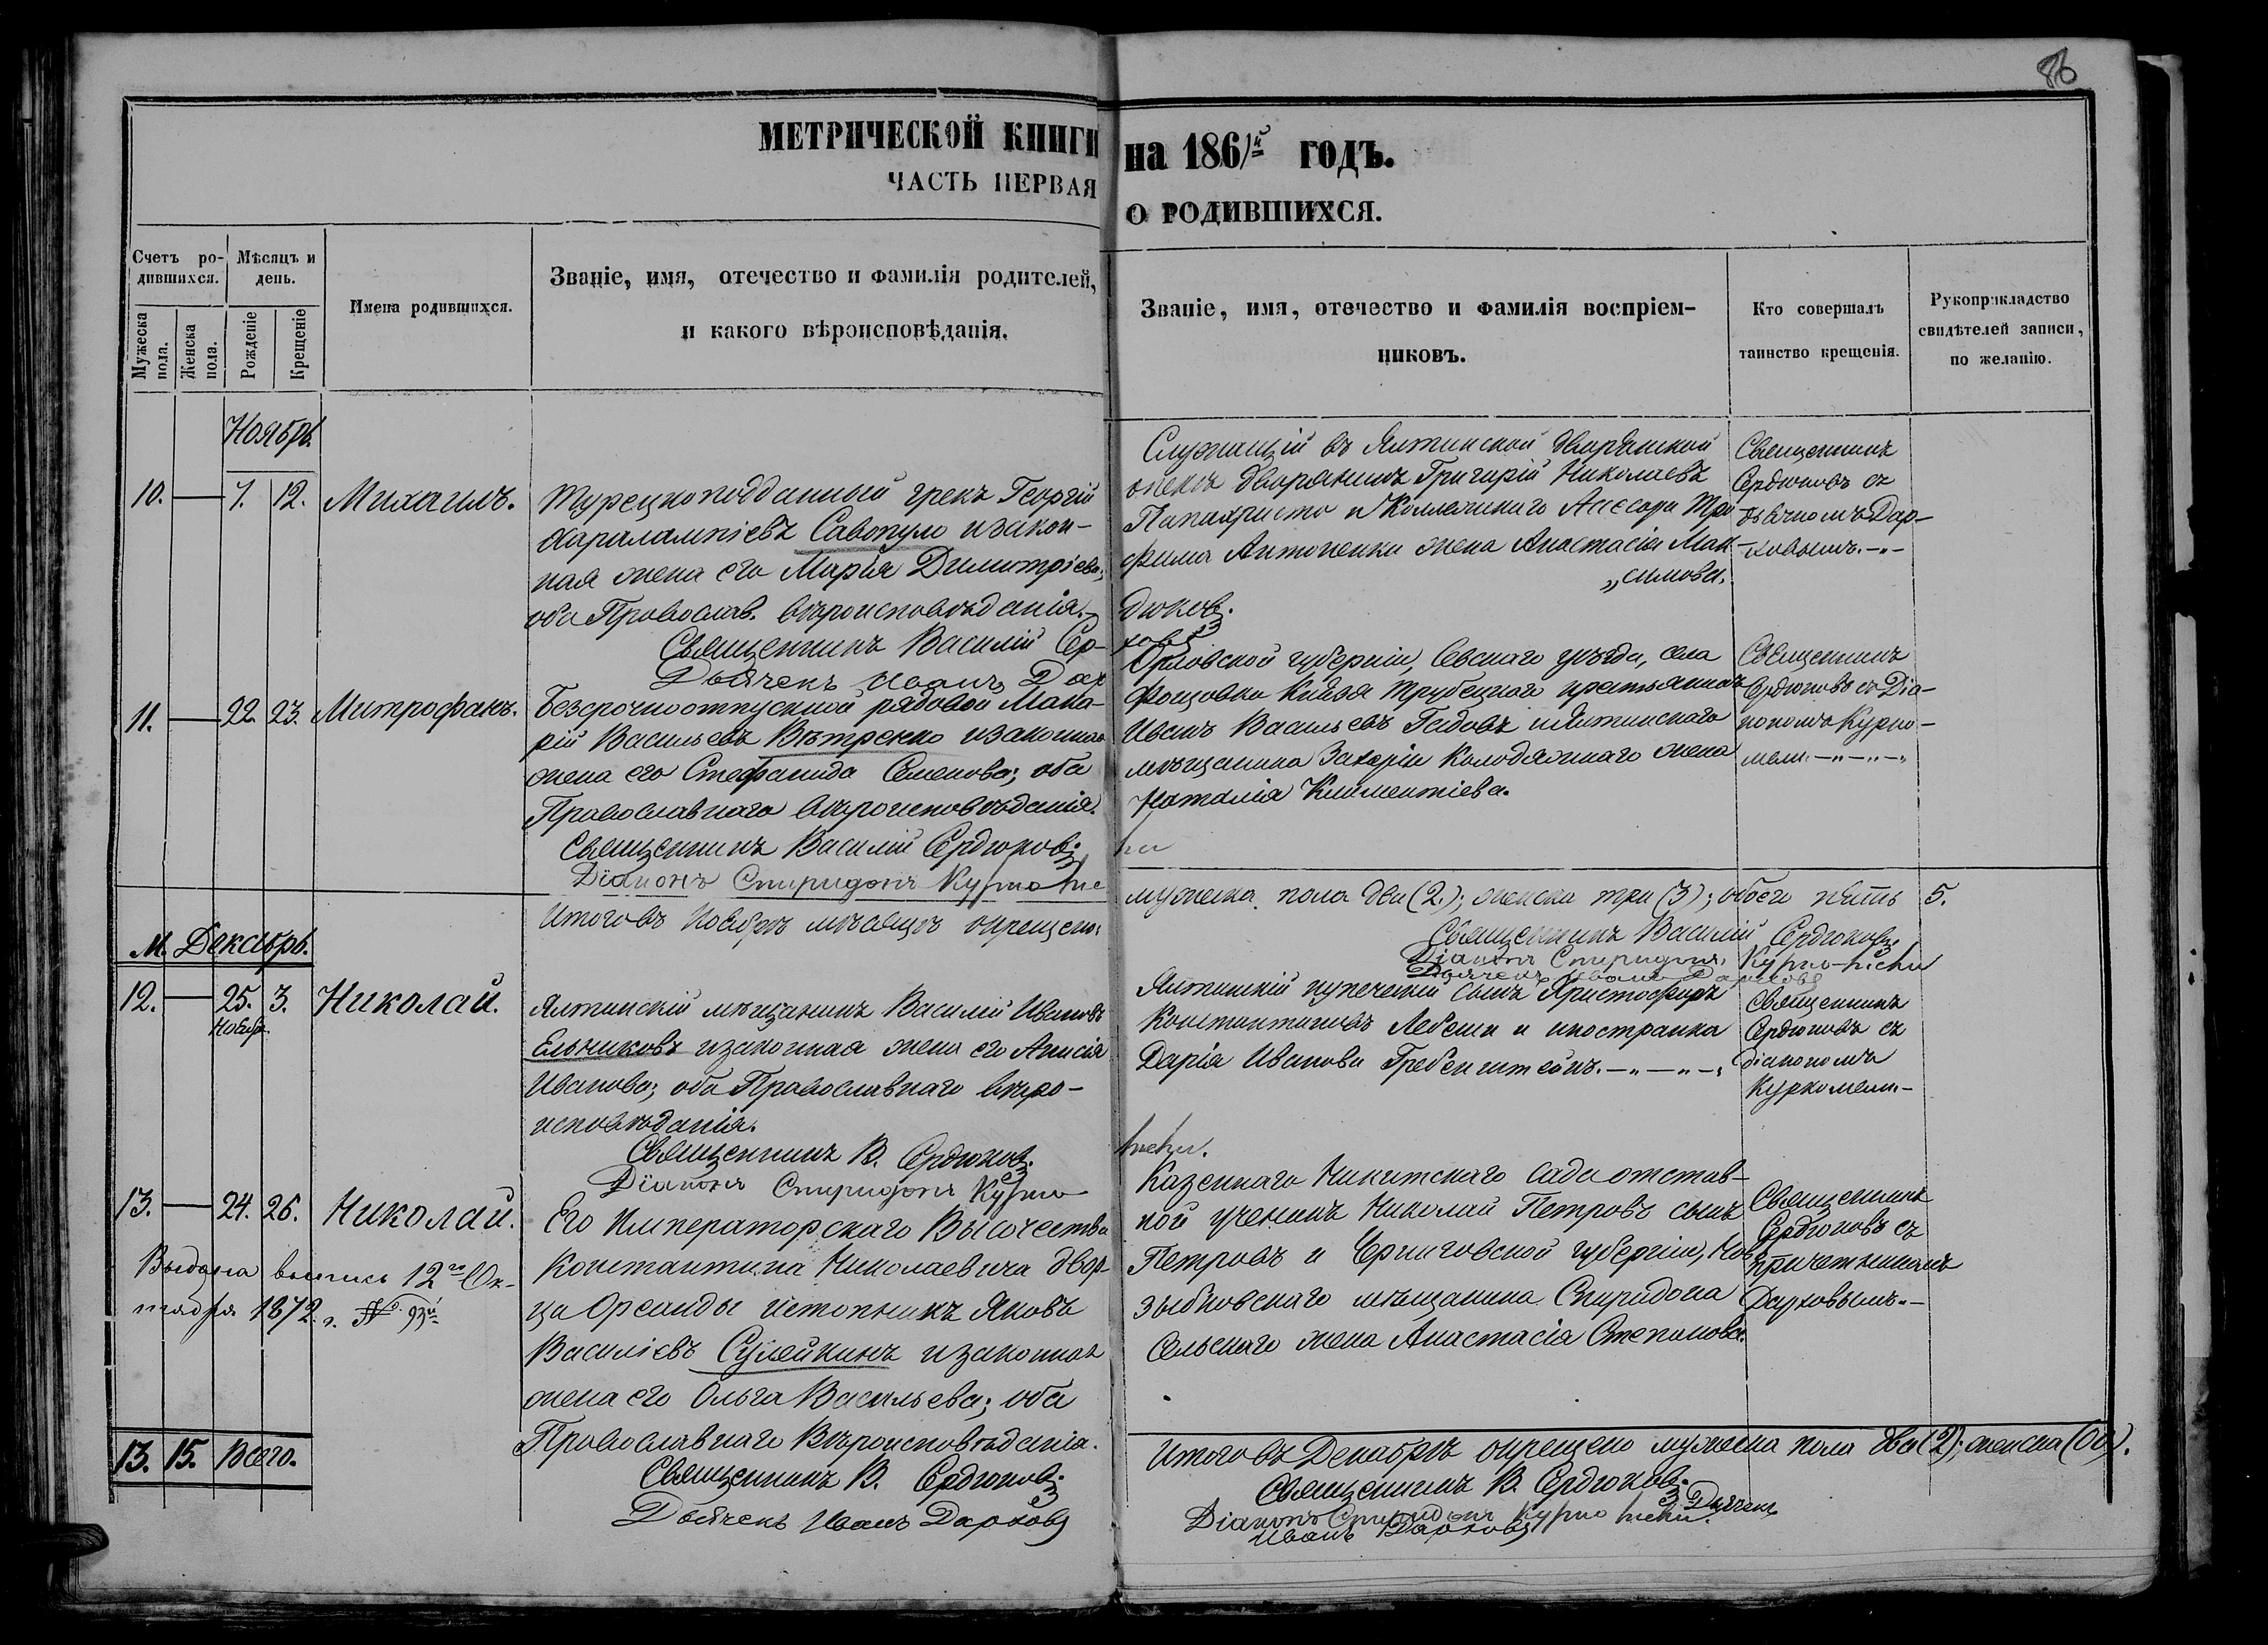 86
МЕТРИЧЕСКОЙ КНИГИ на 1861й годъ.
ЧАСТЬ ПЕРВАЯ О РОДИВШИХСЯ.
Счетъ родившихся.
Мужеска пола.
Женска пола.
Мѣсяцъ и день.
Рожденіе
Крещеніе
Имена родившихся.
Званіе, имя, отечество и фамилія родителей,
и какого вѣроисповѣданія.
Званіе, имя, отечество и фамилія воспріем-
никовъ.
Кто совершалъ
таинство крещенія.
Рукоприкладство
свидѣтелей записи,
по желанію.
Ноябрь.
10. — 7. 12. Михаилъ.
Турецкоподданный грекъ Георгій
Харалампіевъ Савопуло и закон-
ная жена его Марія Димитріева;
оба Православ. вѣроисповѣданія.
Священникъ Василій Сер-
дюковъ.
Дьячекъ Иванъ Дар
ховъ
Служащій въ Ялтинской дворянской
опекѣ дворянинъ Григорій Николаевъ
Папахристо и Коллежскаго Ассесора Тро
фима Антоненки жена Анастасія Мак-
„симова.
Священникъ
Сердюковъ съ
дьячкомъ Дар-
ховымъ.-„-
11. — 22. 23. Митрофанъ.
Безсрочноотпускной рядовой Мака-
рій Васильевъ Вѣтренко и законная
жена его Стефанида Семенова; оба
Православнаго вѣроисповѣданія.
Священникъ Василій Сердюковъ.
Діаконъ Спиридонъ Курко
Орловской губерніи, Севскаго уѣзда, села
Фощовки Князя Трубецкаго крестьянинъ
Иванъ Васильевъ Гадовъ и Ялтинскаго
мѣщанина Захарія Колодяжнаго жена
Наталія Климентіева.
Священникъ
Сердюковъ съ Діа-
кономъ Курко-
мели.-„-„-„
Итого въ Ноябрѣ мѣсяцѣ окрещено:
мужеска пола два (2.); женска три (3); обоего пять 5.
Священникъ Василій Сердюковъ.
Діаконъ Спиридонъ Курко-мели
Дьячекъ Иванъ Дарховъ
М. Декабрь.
12. — 25. 3. Николай.
Ноября.
Ялтинскій мѣщанинъ Василій Ивановъ
Ельниковъ и законная жена его Анисія
Иванова; оба Православнаго вѣро-
исповѣданія.
Священникъ В. Сердюковъ.
Діаконъ Спиридонъ Курко
мели.
Ялтинскій купеческій сынъ Христофоръ
Константиновъ Лебеши и иностранка
Дарія Иванова Гребенштейнъ.-„-„-„
Священникъ
Сердюковъ съ
діакономъ
Куркомели.-
13. — 24. 26. Николай.
Выдана выпись 12го Ок-
тября 1872. г. №
Его Императорскаго Высочества
Константина Николаевича двор
ца Ореанды истопникъ Яковъ
Василіевъ Сулейкинъ и законная
жена его Ольга Васильева; оба
Православнаго Вѣроисповѣданія.
Священникъ В. Сердюковъ.
Дьячекъ Иванъ Дарховъ
Казеннаго Никитскаго сада отстав-
ной ученикъ Николай Петровъ сынъ
Петровъ и Черниговской губерніи, Ново
зыбковскаго мѣщанина Спиридона
Сельскаго жена Анастасія Степанова.
Священникъ
Сердюковъ съ
причетникомъ
Дарховымъ.-
13. 15. Всего.
Итого въ Декабрѣ окрещено мужеска пола два (2); женска (00).
Священникъ В. Сердюковъ.
Діаконъ Спиридонъ Курко мели. Дьячекъ
Иванъ Дарховъ